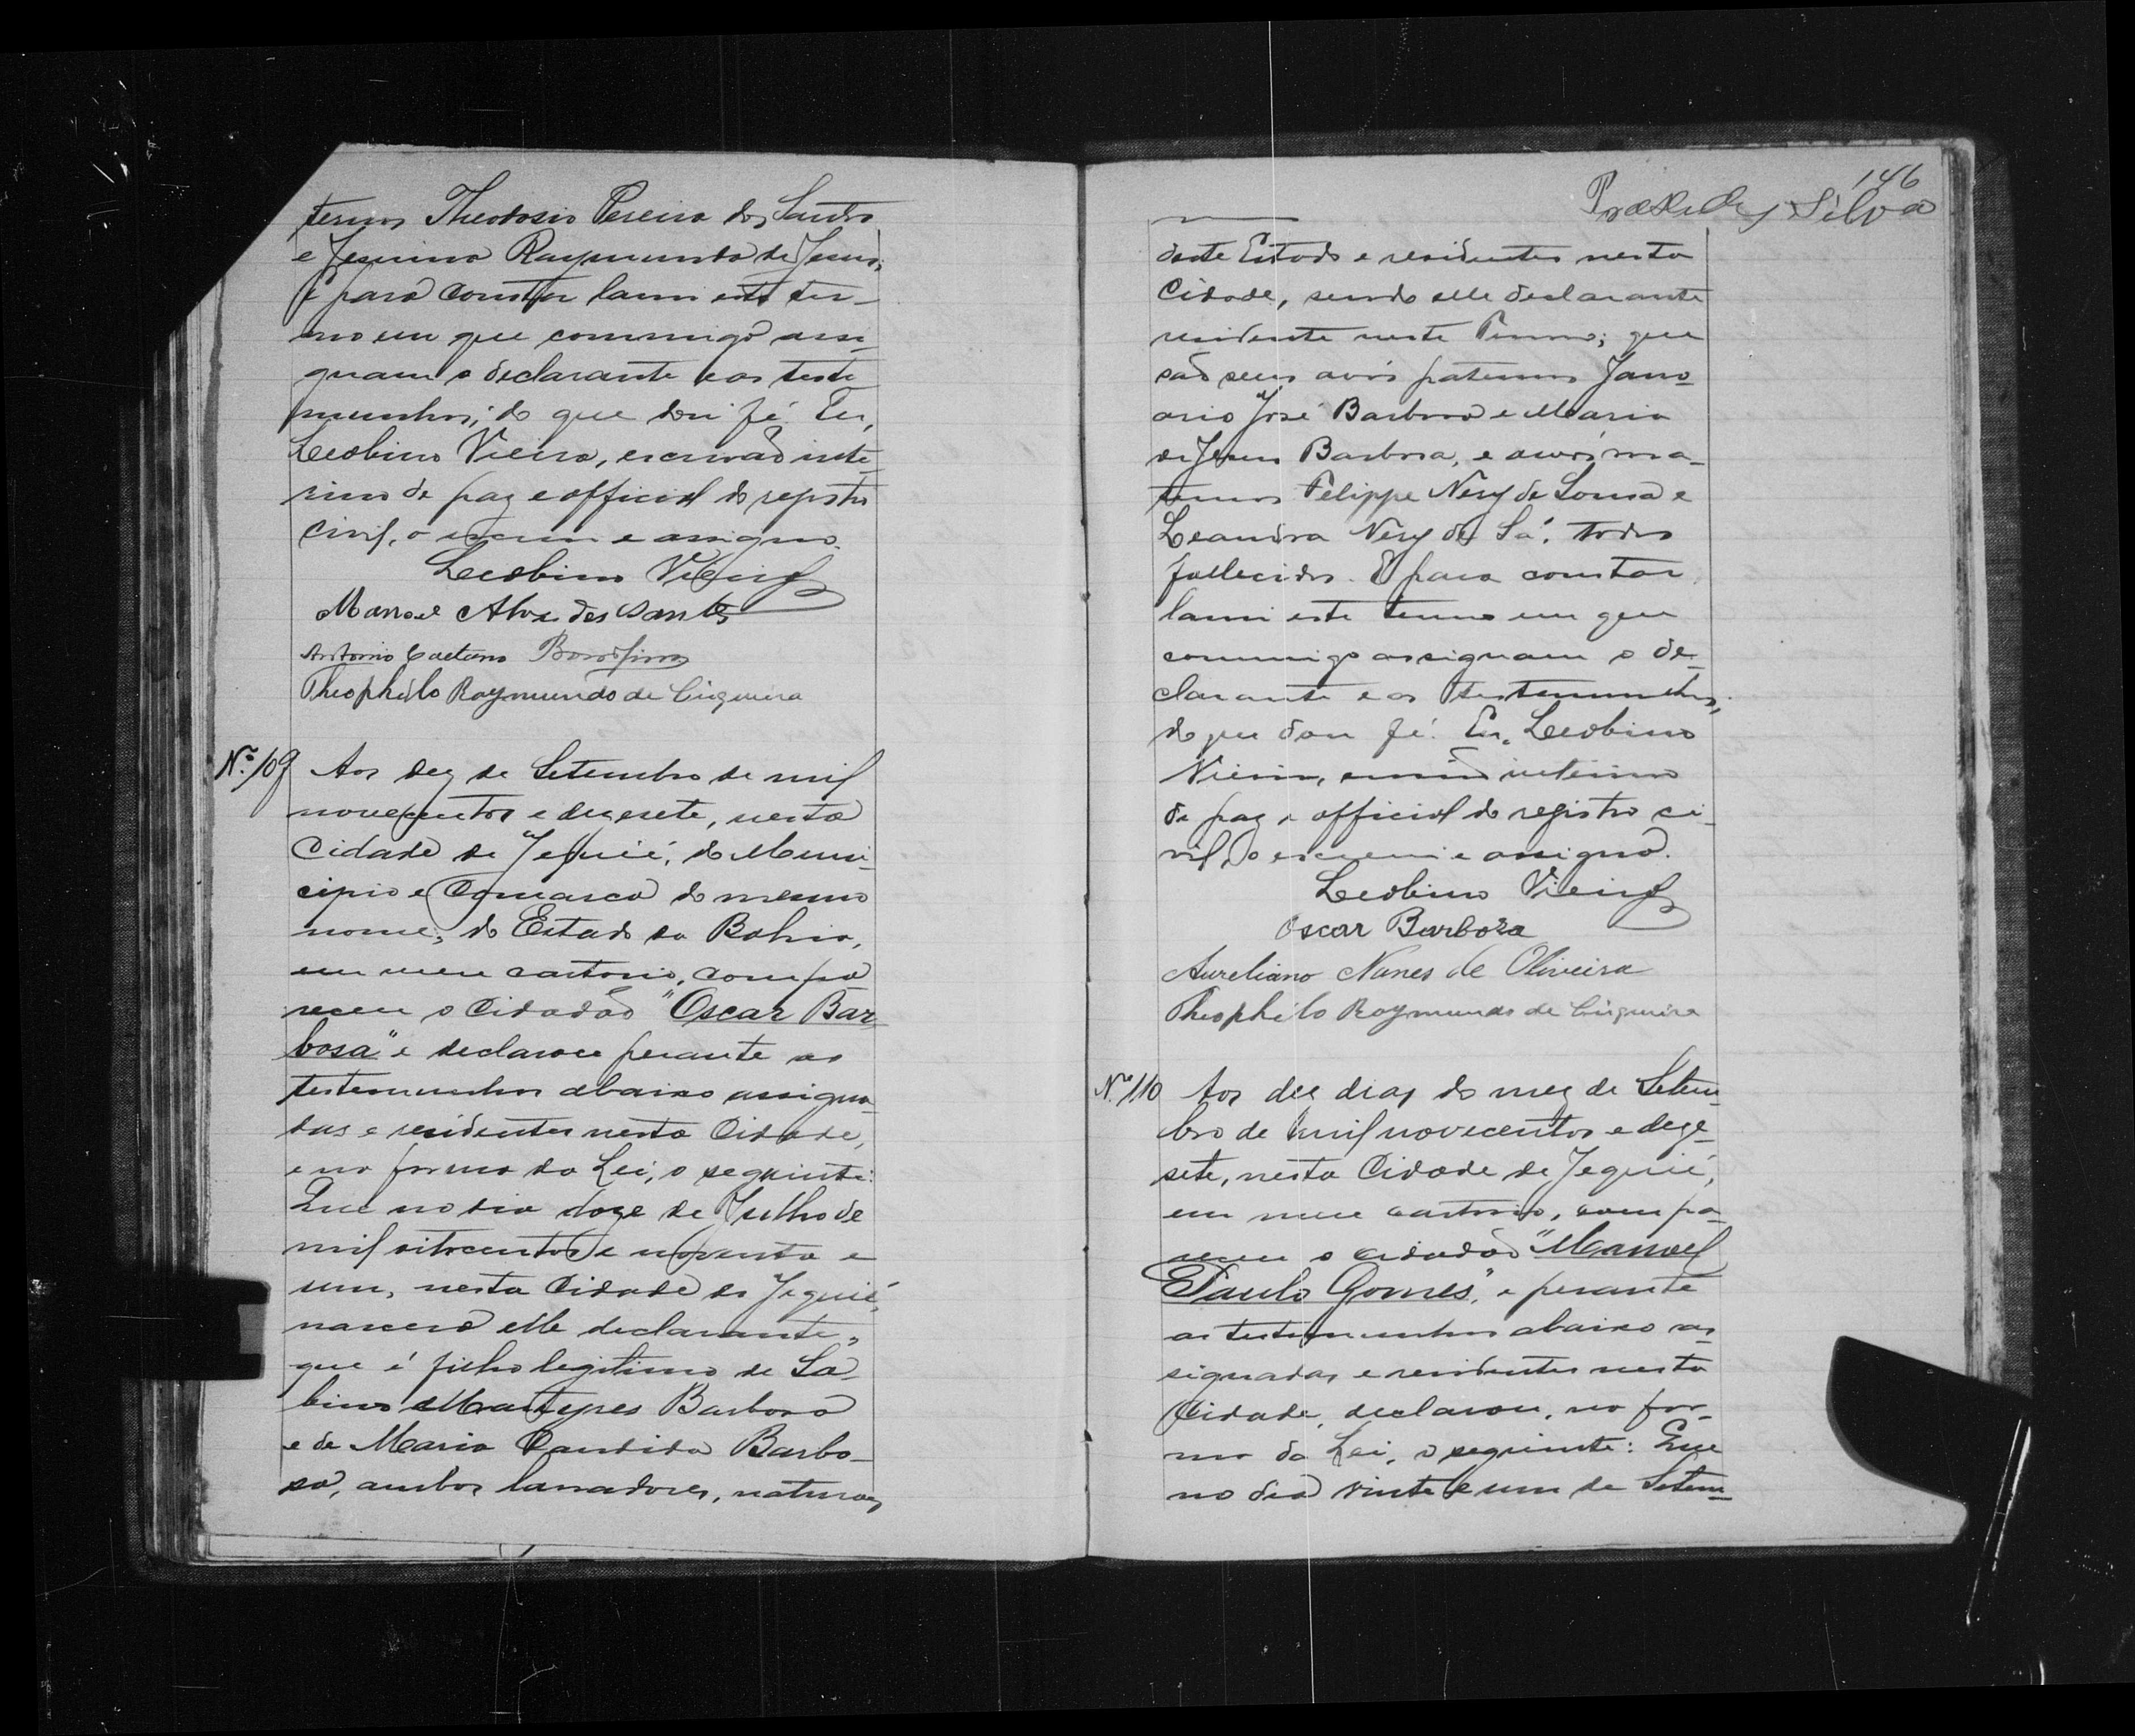 ternos Theodosio Pereira dos Santos
e Jesuina Raymunda de Jesus;
E para constar lavrei este ter-
mo em que commigo assi-
gnam o declarante e as teste
munhas; do que dou fé. Eu,
Leobino Vieira, escrivão inte-
rino de paz e official do registro
civil, o escrevi e assigno.
Leobino Vieira
Manoel Alves dos Santos
Antonio Caetano Bomfim
Theophilo Raymundo de Cirqueira
Nº 109 Aos dez de Setembro de mil
novecentos e dezesete, nesta
Cidade de Jequié, do Muni-
cipio e Comarca do mesmo
nome, do Estado da Bahia,
em meu cartorio, compa
receu o Cidadão "Oscar Bar
bosa" e declarou perante as
testemunhas abaixo assigna-
das e residentes nesta Cidade,
e na forma da Lei, o seguinte:
Que no dia doze de Julho de
mil oitocentos e noventa e
um, nesta Cidade de Jequié,
nasceo elle declarante,
que é filho legitimo de Sa-
bino Martyres Barbosa
e de Maria Candida Barbo-
sa, ambos lavradores, naturaes
146
Praxedes Silva
deste Estado e residentes nesta
Cidade, sendo elle declarante
residente neste Termo; que
são seus avós paternos Janu-
ario José Barbosa e Maria
de Jesus Barbosa, e avós ma-
ternos Felippe Nery de Sousa e
Leandra Nery de Sá, todos
fallecidos. E para constar
lavrei este termo em que
commigo assignam o de-
clarante e as testemunhas,
do que dou fé. Eu, Leobino
Vieira, escrivão interino
de paz e official do registro ci-
vil, o escrevi e assigno.
Leobino Vieira
Oscar Barboza
Aureliano Nunes de Oliveira
Theophilo Raymundo de Cirqueira
Nº 110 Aos dez dias do mez de Setem-
bro de mil novecentos e deze-
sete, nesta Cidade de Jequié,
em meu cartorio, compa-
receu o cidadão "Manoel
Paulo Gomes", e perante
as testemunhas abaixo as-
signadas e residentes nesta
Cidade, declarou, na for-
ma da Lei, o seguinte: Que
no dia vinte e um de Setem-